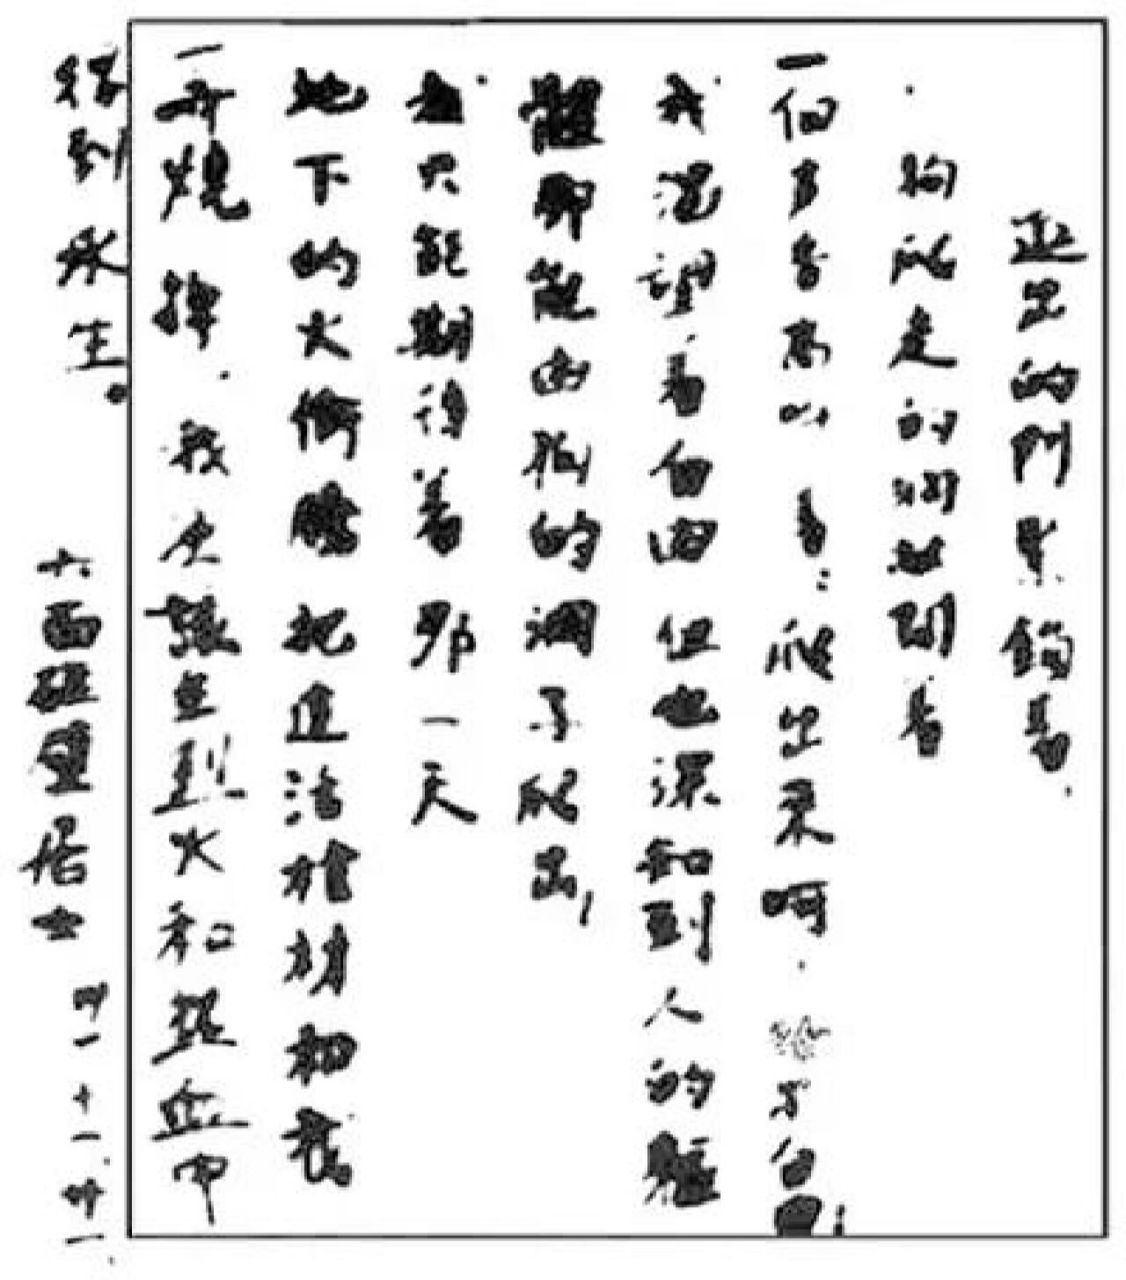 出的門緊鎖着,
狗爬走的洞敞開着
一個聲音高叫着:爬出來呵,給爾自由!
我渴望着自由,但也深知到人的軀
體那能由狗的洞子爬出!
我只能期待着那一天
地下的火衝騰把這活棺材和我
一齊燒掉,我應該在烈火和熱血中
得到永生。
六面碰壁居士 卅一.十一.廿一.